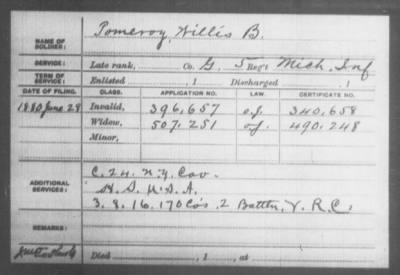 NAME OF SOLDIER: Pomeroy, Willis B.
SERVICE: Late rank, Co. G, 5 Reg't Mich. Inf
TERM OF SERVICE: Enlisted , 1 Discharged , 1
DATE OF FILING. CLASS. APPLICATION NO. LAW. CERTIFICATE NO.
1880 June 29 Invalid, 396,657 340,658
Widow, 507,251 490,248
Minor,
ADDITIONAL SERVICES: C. 24. N.Y. Cav.
U.S.A.
3. 8. 16. 170 Co's. 2 Battn. V.R.C.
REMARKS:
Died , 1 , at